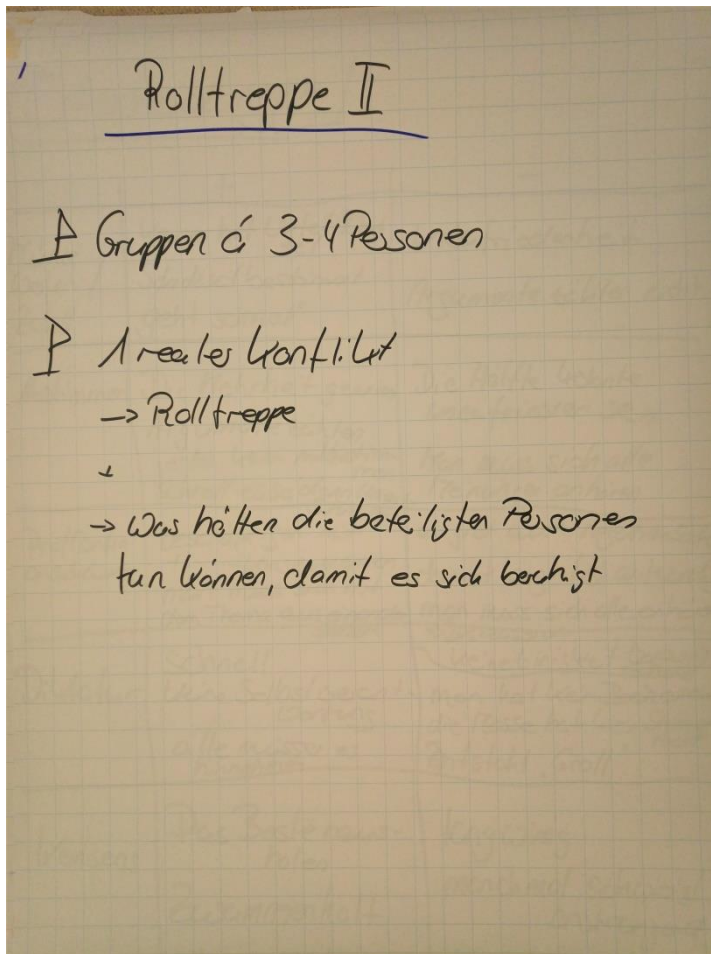 Rolltreppe II
Gruppen á 3-4 Personen
1 reales Konflikt
→ Rolltreppe
→ Was hätten die beteiligten Personen
tun können, damit es sich beruhigt